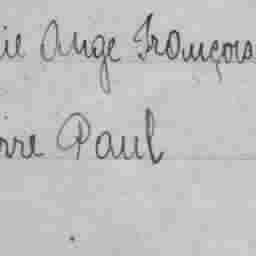 ie Ange François
rre Paul